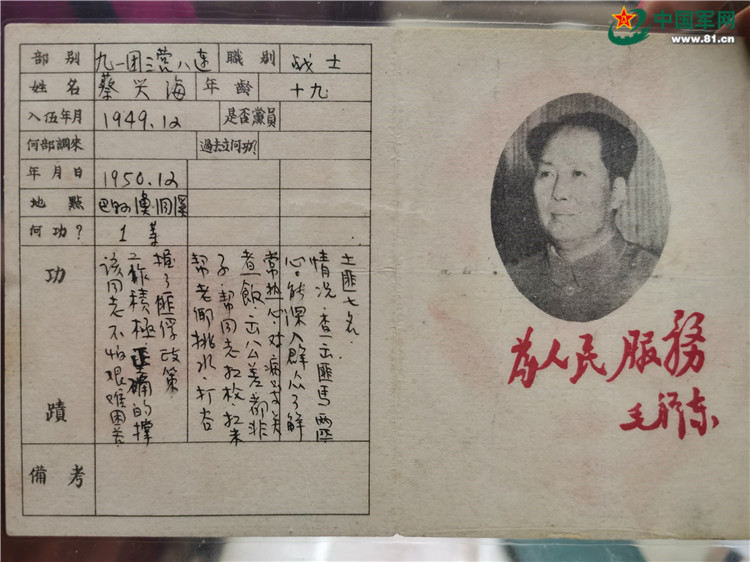 中国军网
www.81.cn
部别 九一团三营八连 職别 战士
姓名 蔡兴海 年齡 十九
入伍年月 1949.12 是否黨員
何部調來 過去立何功?
年月日 1950.12
地點 洞溪
何功? 1等
功蹟
该同志不怕艰难困苦
工作積極正确的掌
握了匪俘政策
帮老乡挑水·打谷
子·帮同志扛枪·扛米
煮飯·出公差都非
常热心·对病員关
心·能深入群众了解
情况·查出匪馬兩匹
土匪七名·
備考
為人民服務
毛泽东